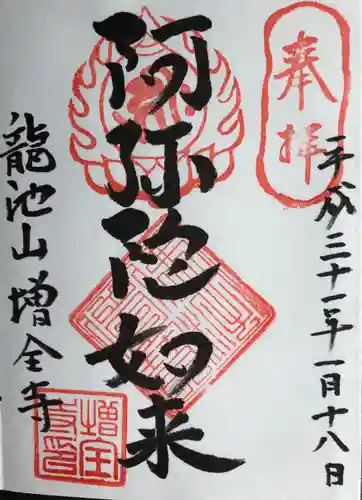 奉拝
平成三十一年一月十八日
阿弥陀如来
龍池山增全寺
增全
寺印